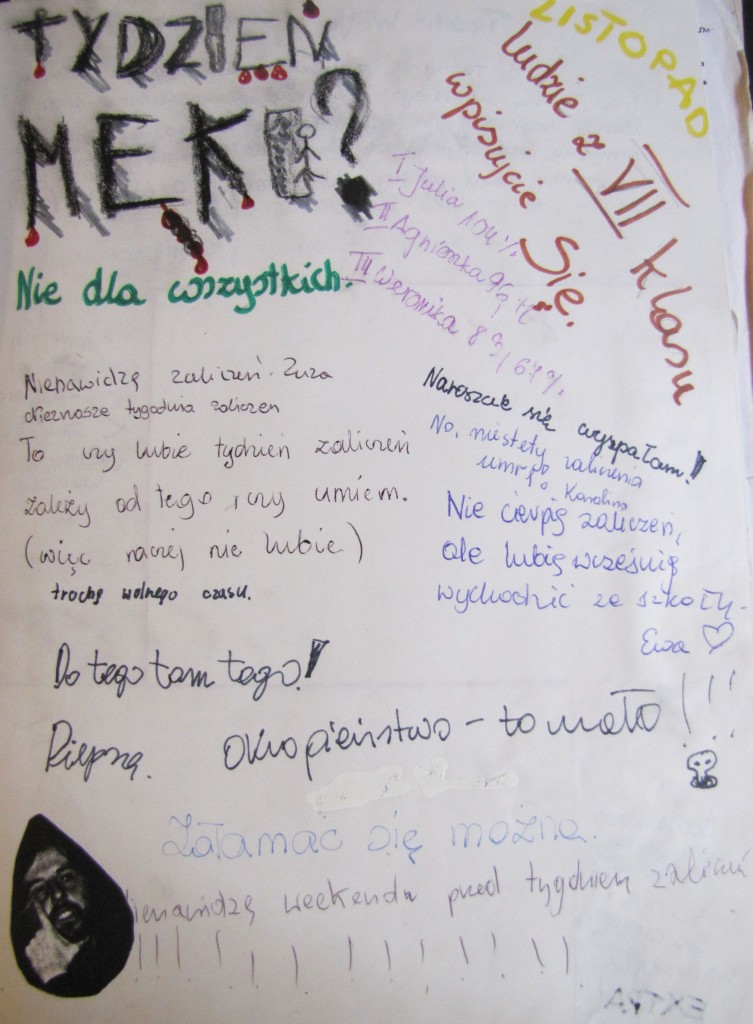 TYDZIEŃ
MĘKI?
LISTOPAD
ludzie z VII klasu
wpisujcie
Się.
I Julia 104%
II Agnieszka
III Weronika
Nie dla wszystkich.
Nienawidzę zaliczeń. Zuza
tygodnia zaliczen
To czy lubie tydzień zaliczeń
zależy od tego, czy umiem.
(więc raczej nie lubie)
trochę wolnego czasu.
Nareszcie się wyspałam!
No, niestety zaliczenia
Karolina
Nie cierpię zaliczeń,
ale lubię wcześnię
wychodzić ze szkoły.
Ewa
Do tego tam tego!
okropieństwo - to mało!!!
Załamać się można.
nienawidzę weekendu przed tygodniem zaliczeń
!!!!!!!!!!!!
EXTRA